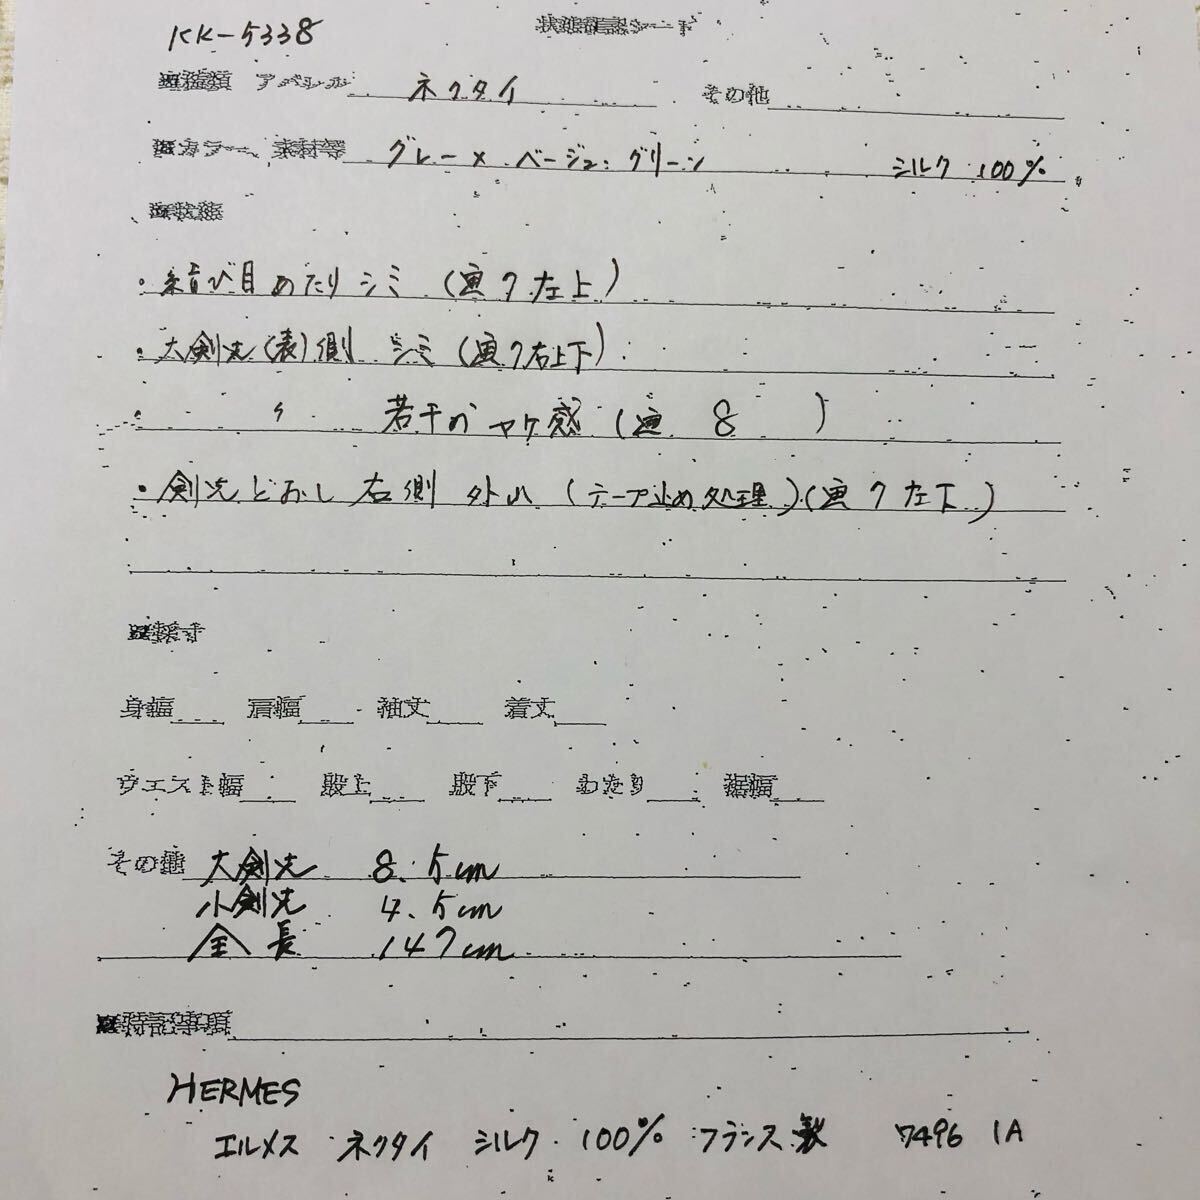 KK-5338
状態確認シート
種類 アパレル ネクタイ その他
カラー、素材等 グレー×ベージュ:グリーン シルク 100%
状態
・結び目あたり シミ (画7左上)
・大剣先(表)側 シミ (画7右上下)
・ 〃 若干のヤケ感 (画 8 )
・剣先どおし 右側 外れ (テープ止め処理)(画7左下)
採寸
身幅 肩幅 袖丈 着丈
ウエスト幅 股上 股下 わたり 裾幅
その他 大剣先 8.5cm
小剣先 4.5cm
全長 147cm
特記事項
HERMES
エルメス ネクタイ シルク 100% フランス製 7496 IA